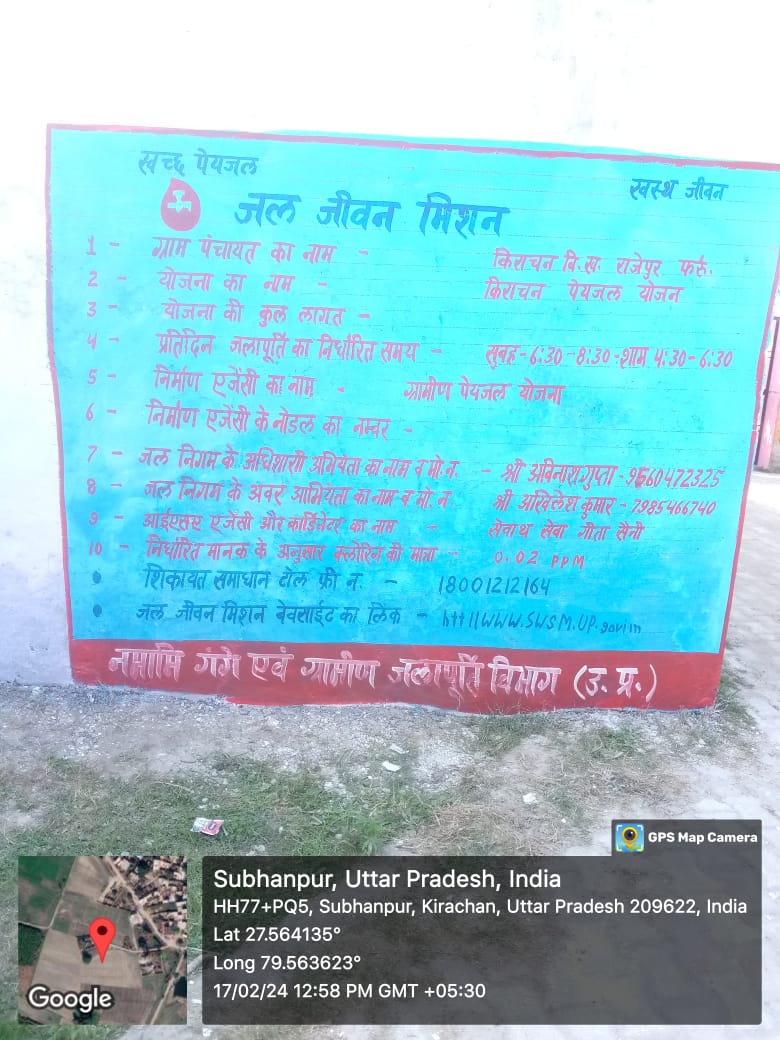 स्वच्छ पेयजल
स्वस्थ जीवन
जल जीवन मिशन
1 - ग्राम पंचायत का नाम - किराचन वि.ख. राजेपुर फर्रु.
2 - योजना का नाम - किराचन पेयजल योजन
3 - योजना की कुल लागत -
4 - प्रतिदिन जलापूर्ति का निर्धारित समय - सुबह - 6:30 - 8:30 - शाम 4:30 - 6:30
5 - निर्माण एजेंसी का नाम - ग्रामीण पेयजल योजना
6 - निर्माण एजेंसी के नोडल का नम्बर -
7 - जल निगम के अधिशासी अभियंता का नाम व मो.न. - श्री अविनाश गुप्ता - 9560472325
8 - जल निगम के अवर अभियंता का नाम व मो. न. श्री अखिलेश कुमार - 7985466740
9 - आईएसए एजेंसी और कार्डिनेटर का नाम - सेवाथ सेवा गीता सैनी
10 - निर्धारित मानक के अनुसार क्लोरिन की मात्रा - 0.02 PPM
• शिकायत समाधान टोल फ्री न. - 18001212164
• जल जीवन मिशन बेवसाईट का लिंक - htt//WWW.SWSM.UP.gov.in
नमामि गंगे एवं ग्रामीण जलापूर्ति विभाग (उ. प्र.)
GPS Map Camera
Subhanpur, Uttar Pradesh, India
HH77+PQ5, Subhanpur, Kirachan, Uttar Pradesh 209622, India
Lat 27.564135°
Long 79.563623°
17/02/24 12:58 PM GMT +05:30
Google